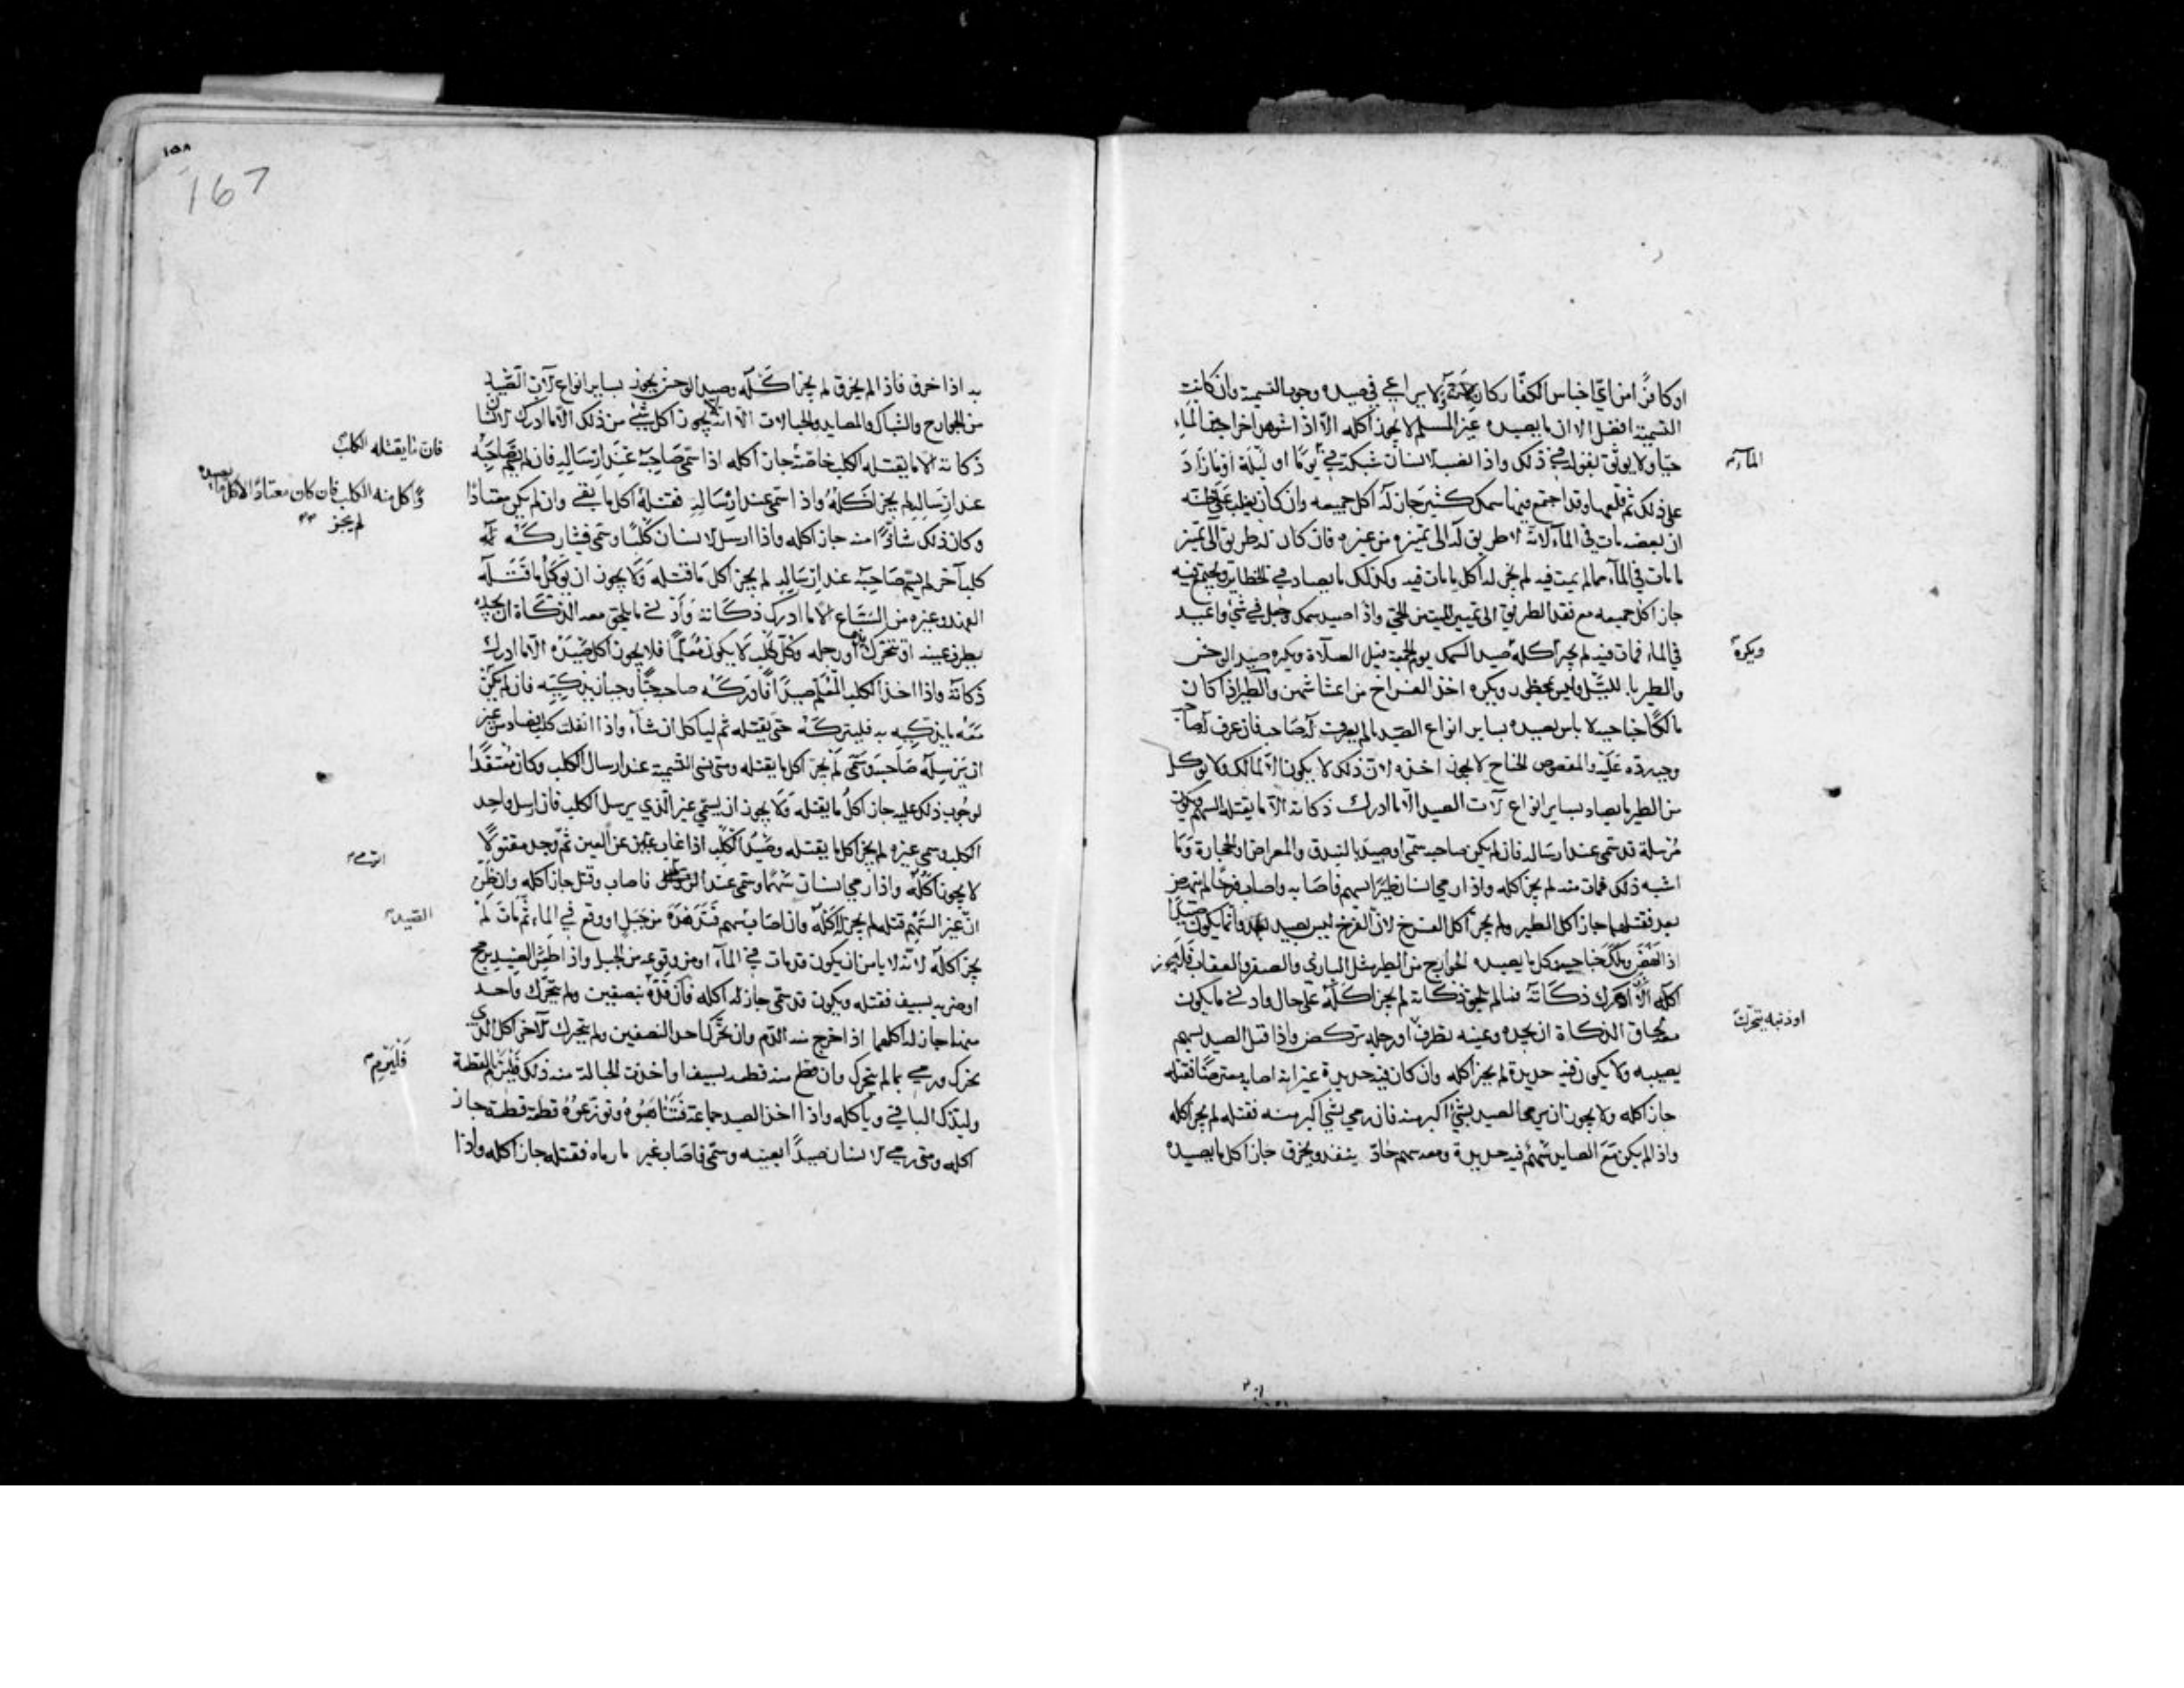 او كافرًا من اىّ اجناس الكفّار كان ولا يراعى فى صيده وجوب التسمية وان كانت
التسمية افضل الا ان ما يصيده غير المسلم لا يجوز اكله الّا اذا شوهد اخراجه من الماء
حيًا ولا يوثق بقوله فى ذلك واذا نصب الانسان شبكة فى يومًا او ليلة او ما زاد
الماء
على ذلك ثم قلعها وقد اجتمع فيها سمك كثير جاز له اكل جميعه وان كان يغلب على ظنه
ان بعضه مات فى الماء لانه لا طريق له الى تميزه من غيره فان كان له طريق الى تميز
ما مات فى الماء مما لم يمت فيه لم يجز له اكل ما مات فيه وكذلك ما يصاد فى الحظاير ويجتمع فيه
جاز اكل جميعه مع فقد الطريق الى تمييز الميت من الحى واذا اصيد سمك وجعل فى شىء واعيد
فى الماء فمات فيه لم يجز اكله صيد السمك يوم الجمعة قبل الصلاة ويكره صيد الوحش
ويكره
والطير بالليل وليس بمحظور ويكره اخذ الفراخ من اعشاشهن والطير اذا كان
مالكًا جناحيه لا باس بصيده بساير انواع الصيد ما لم يعرف له صاحب فان عرف له صاحب
وجب رده عليه والمقصوص الجناح لا يجوز اخذه لان ذلك لا يكون الّا لمالك ولا يؤكل
من الطير ما يصاد بساير انواع آلات الصيد الّا ما ادرك ذكاته الّا ما يقتله السهم ويكون
مرسله قد سمى عند ارساله فان لم يكن صاحبه سمى او صيد بالبندق والمعراض او الحجارة وما
اشبه ذلك فمات منه لم يجز اكله واذا رمى انسان طيرًا بسهم فاصابه واصاب فرخًا لم ينهض
بعد فقتلهما جاز اكل الطير ولم يجز اكل الفرخ لان الفرخ ليس بصيد بعد وانما يكون صيدًا
اذا نهض وملك جناحيه وكل ما يصيده الجوارح من الطير مثل البازى والصقر والعقاب فلا يجوز
اكله الّا اذا ادرك ذكاته فما لم يلحق ذكاته لم يجز اكله على حال وادنى ما يكون
معه لحاق الذكاة ان يجده وعينه تطرف او رجله تركض واذا قتل الصيد بسهم
او ذنبه يتحرك
يصيبه ولا يكون فيه حديدة لم يجز اكله وان كان فيه حديدة غير انه اصابه معترضًا فقتله
جاز اكله ولا يجوز ان يرمى الصيد بشىء اكبر منه فان رمى بشىء اكبر منه فقتله لم يجز اكله
واذا لم يكن مع الصايد سهم فيه حديدة ومعه سهم حادّ ينفذ ويخرق جاز اكل ما يصيده
١٥٨
167
به اذا خرق فاذا لم يخرق لم يجز اكله وصيد الوحش يجوز بساير انواع آلات الصيد
من الجوارح والشباك والمصايد والحبالات الّا انه لا يجوز اكل شىء من ذلك الّا ما ادرك الانسان
ذكاته الّا ما يقتله الكلب خاصّة جاز اكله اذا سمى صاحبه عند ارساله فان لم يسم صاحبه
فان ما يقتله الكلب
عند ارساله لم يجز اكله واذا سمى عند ارساله فقتله اكل ما بقى وان لم يكن معتادًا
واكل منه الكلب فان كان معتادًا لاكل ما يصيده
لم يجز
وكان ذلك شاذًا منه جاز اكله واذا ارسل الانسان كلبًا وسمى فشاركه
كلب آخر لم يسم صاحبه عند ارساله لم يجز اكل ما قتله ولا يجوز ان يؤكل ما قتله
الفهد وغيره من السباع الّا ما ادرك ذكاته وادنى ما يلحق معه الذكاة ان يجده
يطرف عينه او تتحرك او رجله وكل كلب لا يكون معلمًا فلا يجوز اكل صيده الّا ما ادرك
ذكاته واذا اخذ الكلب المعلم صيدًا فادركه صاحبه حيًّا وجب ان يذكيه فان لم يكن
معه ما يذكيه به فليتركه حتى يقتله ثم لياكل ان شاء واذا انفلت كلب فصاد من غير
ان يرسله صاحبه وسمى لم يجز اكل ما يقتله ومتى نسى التسمية عند ارسال الكلب وكان معتقدًا
لوجوب ذلك عليه جاز اكل ما يقتله ولا يجوز ان يسمى غير الذي يرسل الكلب فان ارسل واحد
الكلب وسمى غيره لم يجز اكل ما يقتله وصيد الكلب اذا غاب عن العين ثم وجد مقتولًا
الرمى
لا يجوز اكله واذا رمى انسان سهمًا وسمى عند فاصاب وقتل جاز اكله وان ظن
الصيد
ان غير السهم قتله لم يجز له اكله وان اصابه سهم فتدهده من جبل او وقع في الماء ثم مات لم
يجز اكله لانه لا يامن ان يكون قد مات فى الماء او من وقوعه من الجبل واذا طعن الصيد برمح
او ضربه بسيف فقتله ويكون قد سمى جاز له اكله فان قدّه بنصفين ولم يتحرك واحد
منهما جاز له اكلهما اذا خرج منه الدم وان تحرك احد النصفين ولم يتحرك الآخر اكل الذى
تحرك ورمى بما لم يتحرك وان قطع منه قطعة بسيف او اخذت الحبالة منه ذلك فليرم القطعة
فليرم
وليذك الباقى وياكله واذا اخذ الصيد جماعة فتناهبوه وتوزعوه قطعة قطعة جاز
اكله ومتى رمى الانسان صيدًا بعينه وسمى فاصاب غير ما رماه فقتله جاز اكله واذا